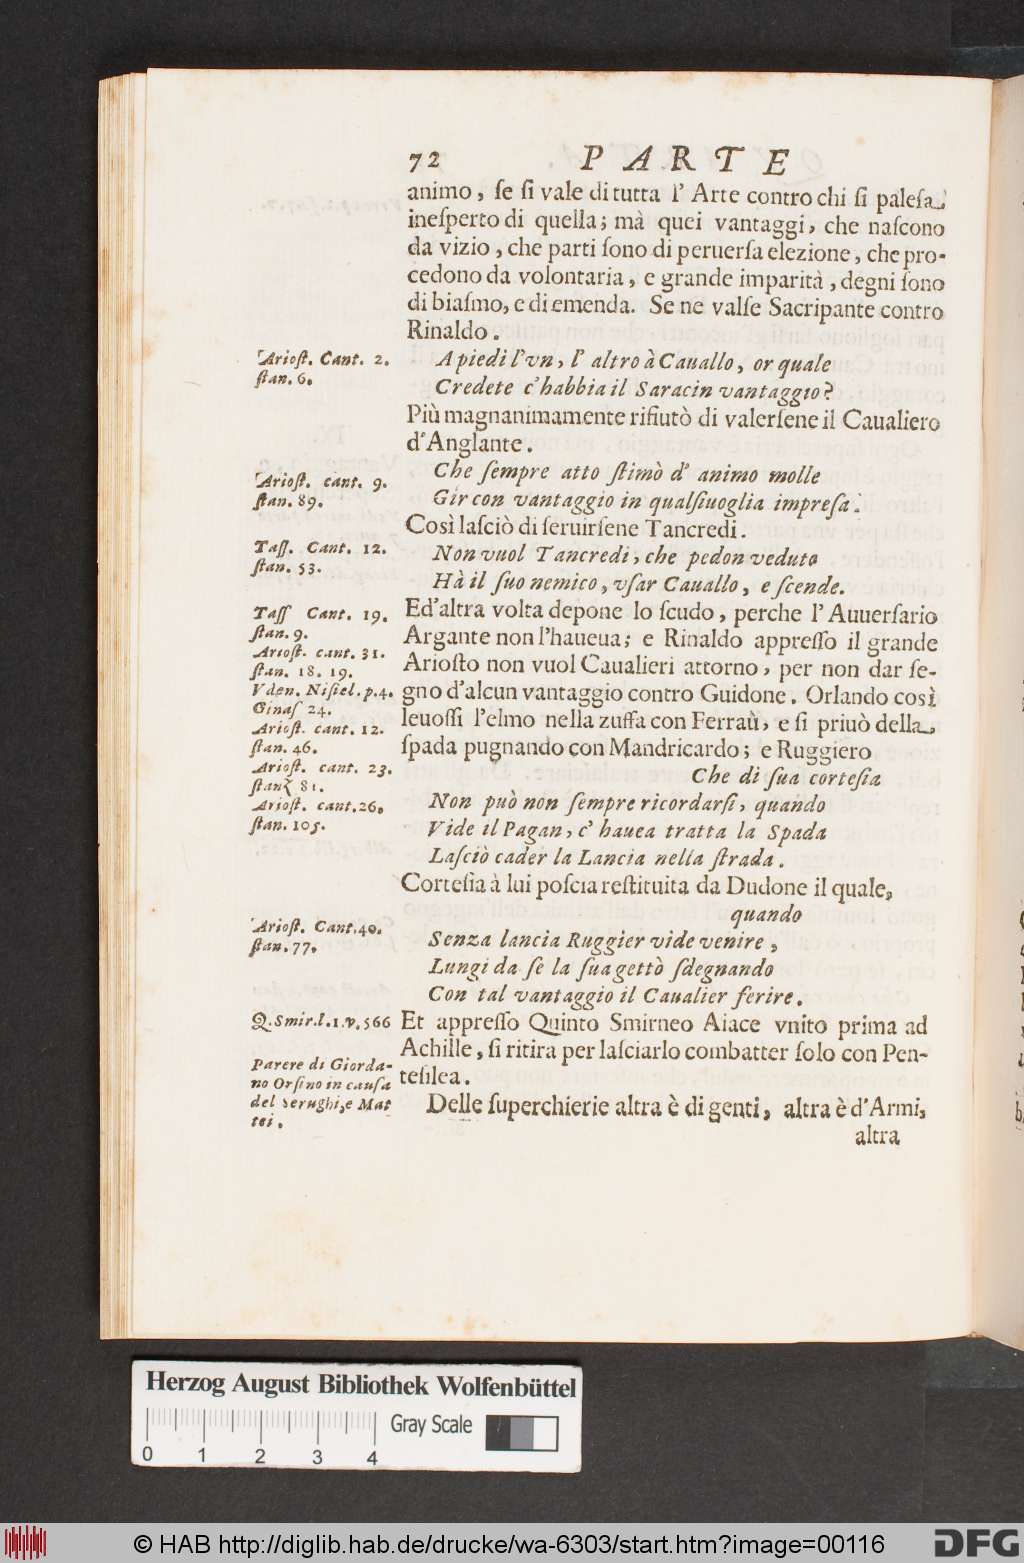 72 PARTE
animo, ſe ſi vale di tutta l' Arte contro chi ſi paleſa
ineſperto di quella; mà quei vantaggi, che naſcono
da vizio, che parti ſono di peruerſa elezione, che pro-
cedono da volontaria, e grande imparità, degni ſono
di biaſmo, e di emenda. Se ne valſe Sacripante contro
Rinaldo.
Arioſt. Cant. 2.
ſtan. 6.
A piedi l'vn, l' altro à Cauallo, or quale
Credete c'habbia il Saracin vantaggio?
Più magnanimamente rifiutò di valerſene il Caualiero
d'Anglante.
Arioſt. cant. 9.
ſtan. 89.
Che ſempre atto ſtimò d' animo molle
Gir con vantaggio in qualſiuoglia impreſa.
Così laſciò di ſeruirſene Tancredi.
Taſſ. Cant. 12.
ſtan. 53.
Non vuol Tancredi, che pedon veduto
Hà il ſuo nemico, vſar Cauallo, e ſcende.
Taſſ Cant. 19.
ſtan. 9.
Arioſt. cant. 31.
ſtan. 18. 19.
Vden. Niſiel. p. 4.
Ginaſ 24.
Arioſt. cant. 12.
ſtan. 46.
Arioſt. cant. 23.
ſtanζ 81.
Arioſt. cant. 26.
ſtan. 105.
Ed'altra volta depone lo ſcudo, perche l' Auuerſario
Argante non l'haueua; e Rinaldo appreſſo il grande
Arioſto non vuol Caualieri attorno, per non dar ſe-
gno d'alcun vantaggio contro Guidone. Orlando così
leuoſſi l'elmo nella zuffa con Ferraù, e ſi priuò della
ſpada pugnando con Mandricardo; e Ruggiero
Che di ſua corteſia
Non può non ſempre ricordarſi, quando
Vide il Pagan, c' hauea tratta la Spada
Laſciò cader la Lancia nella ſtrada.
Corteſia à lui poſcia reſtituita da Dudone il quale,
Arioſt. Cant. 40.
ſtan. 77.
quando
Senza lancia Ruggier vide venire,
Lungi da ſe la ſua gettò ſdegnando
Con tal vantaggio il Caualier ferire.
Q. Smir. l. 1. v. 566
Et appreſſo Quinto Smirneo Aiace vnito prima ad
Achille, ſi ritira per laſciarlo combatter ſolo con Pen-
teſilea.
Parere di Giorda-
no Orſino in cauſa
del Serughi, e Mat
tei.
Delle ſuperchierie altra è di genti, altra è d'Armi,
altra
Herzog August Bibliothek Wolfenbüttel
Gray Scale
0 1 2 3 4
© HAB http://diglib.hab.de/drucke/wa-6303/start.htm?image=00116
DFG